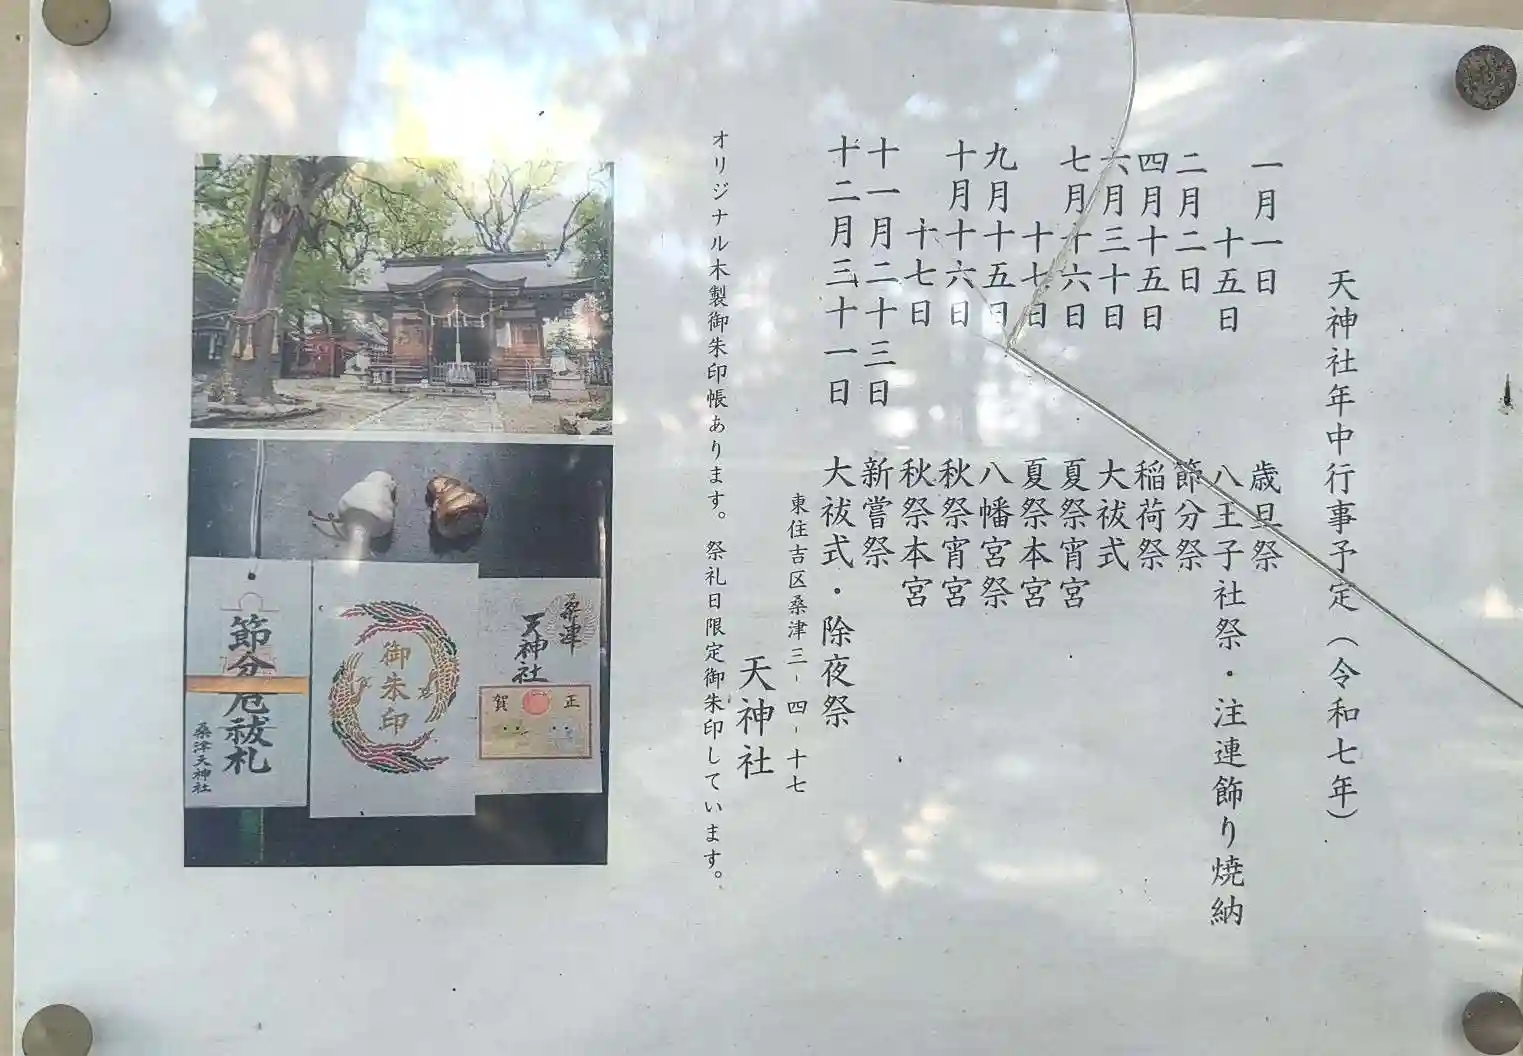 天神社年中行事予定（令和七年）
一月一日 歳旦祭
十五日 八王子社祭・注連飾り焼納
二月二日 節分祭
四月十五日 稲荷祭
六月三十日 大祓式
七月十六日 夏祭宵宮
十七日 夏祭本宮
九月十五日 八幡宮祭
十月十六日 秋祭宵宮
十七日 秋祭本宮
十一月二十三日 新嘗祭
十二月三十一日 大祓式・除夜祭
東住吉区桑津三-四-十七
天神社
オリジナル木製御朱印帳あります。祭礼日限定御朱印しています。
桑津
天神社
正
賀
御朱印
節分厄祓札
桑津天神社